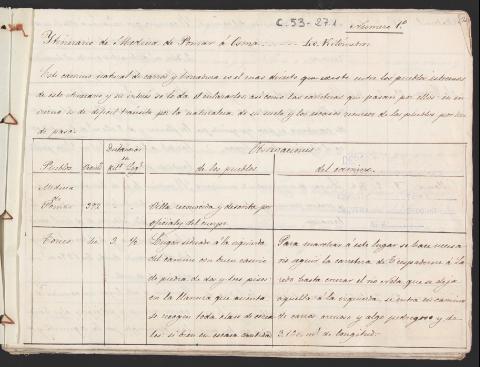 C.53-27.1
Numero 1º
Ytinerario de Medina de Pomar á Osma
Este camino natural de carros y herradura es el mas directo que existe entre los pueblos extremos
de este itinerario y su interés se lo da el enlazarlos, así como las carreteras que pasan por ellos: en in
vierno es de dificil tránsito por la naturaleza de su suelo y los escasos recursos de los pueblos por don
de pasa.
Pueblos
Distancias
en
Kilˢ
Observaciones
de los pueblos
del camino
Medina
de
Pomar
392
-
-
Villa reconocida y descrita por
oficiales del cuerpo
Torres
40
3
Lugar situado á la izquierda
del camino con buen caserio
de piedra de dos y tres pisos:
en la llanura que asienta
se recogen toda clase de cerea
les si bien en escasa cantidad
Para marchar á este lugar se hace necesa
rio seguir la carretera de Trespaderne á la
redo hasta cruzar el rio Nela, que se deja
aquella á la izquierda, y entra en camino
de carros arenoso y algo pedregoso y de
de longitud.